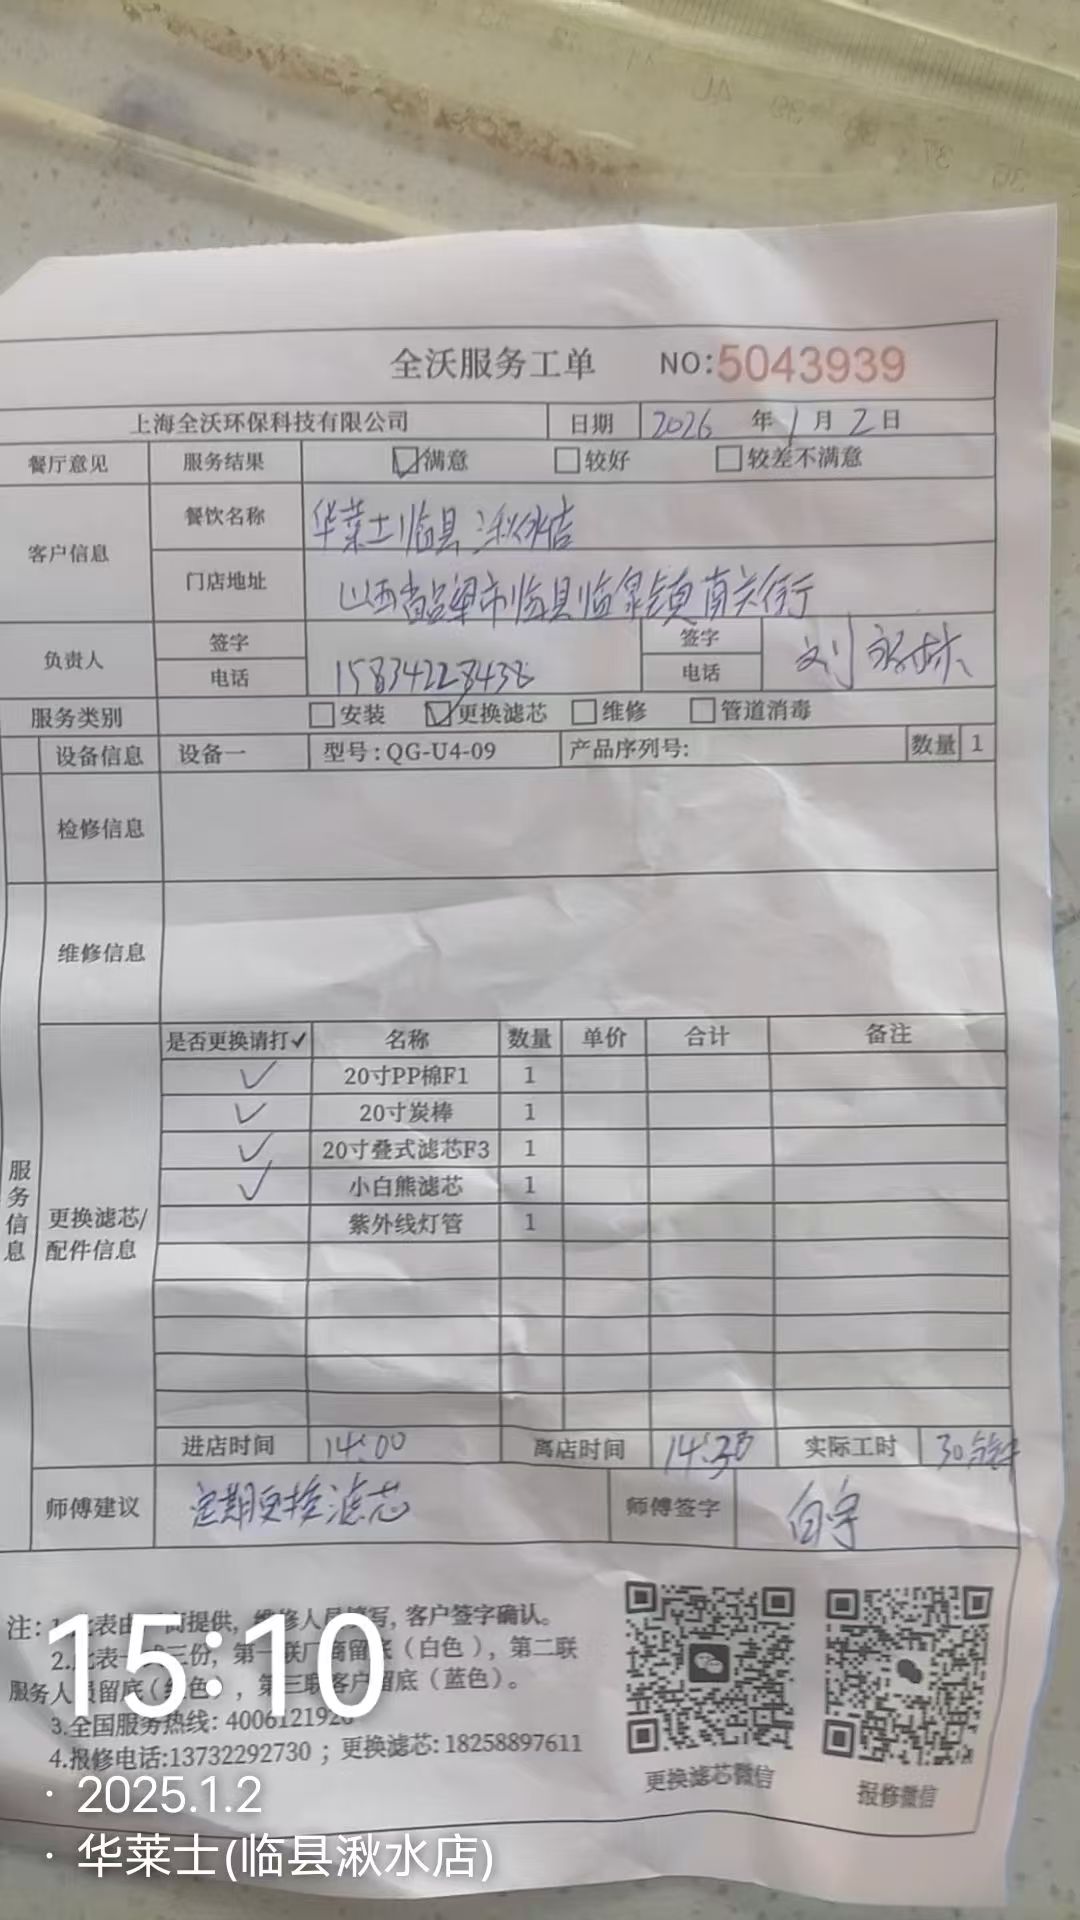 全沃服务工单 NO:5043939
上海全沃环保科技有限公司 日期 2026 年 1 月 2 日
餐厅意见 服务结果 满意 较好 较差不满意
客户信息 餐饮名称 华莱士临县湫水店
门店地址 山西省吕梁市临县临泉镇南关街
负责人 签字 签字 刘
电话 15834228438 电话
服务类别 安装 更换滤芯 维修 管道消毒
设备信息 设备一 型号:QG-U4-09 产品序列号: 数量 1
检修信息
维修信息
服务信息
更换滤芯/配件信息
是否更换请打✓ 名称 数量 单价 合计 备注
✓ 20寸PP棉F1 1
✓ 20寸炭棒 1
✓ 20寸叠式滤芯F3 1
✓ 小白熊滤芯 1
紫外线灯管 1
进店时间 14:00 离店时间 14:30 实际工时 30分钟
师傅建议 定期更换滤芯 师傅签字 白宇
注: 1.此表由 商提供, 维修人员填写, 客户签字确认。
2.此表一式三份, 第一联厂商留底(白色), 第二联
服务人员留底(红色), 第三联客户留底(蓝色)。
3.全国服务热线: 4006121926
4.报修电话:13732292730 ; 更换滤芯: 18258897611
更换滤芯微信 报修微信
15:10
· 2025.1.2
· 华莱士(临县湫水店)